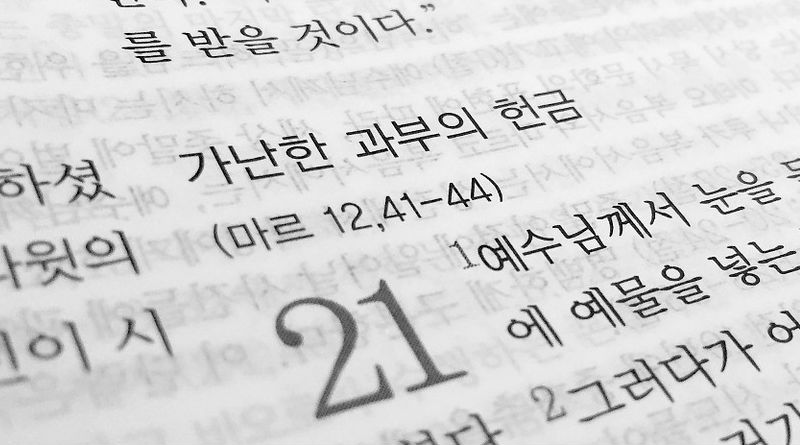 를 받을 것이다.”
하셨
윗의
이 시
가난한 과부의 헌금
(마르 12,41-44)
21
1예수님께서 눈을
에 예물을 넣는
2그러다가 어